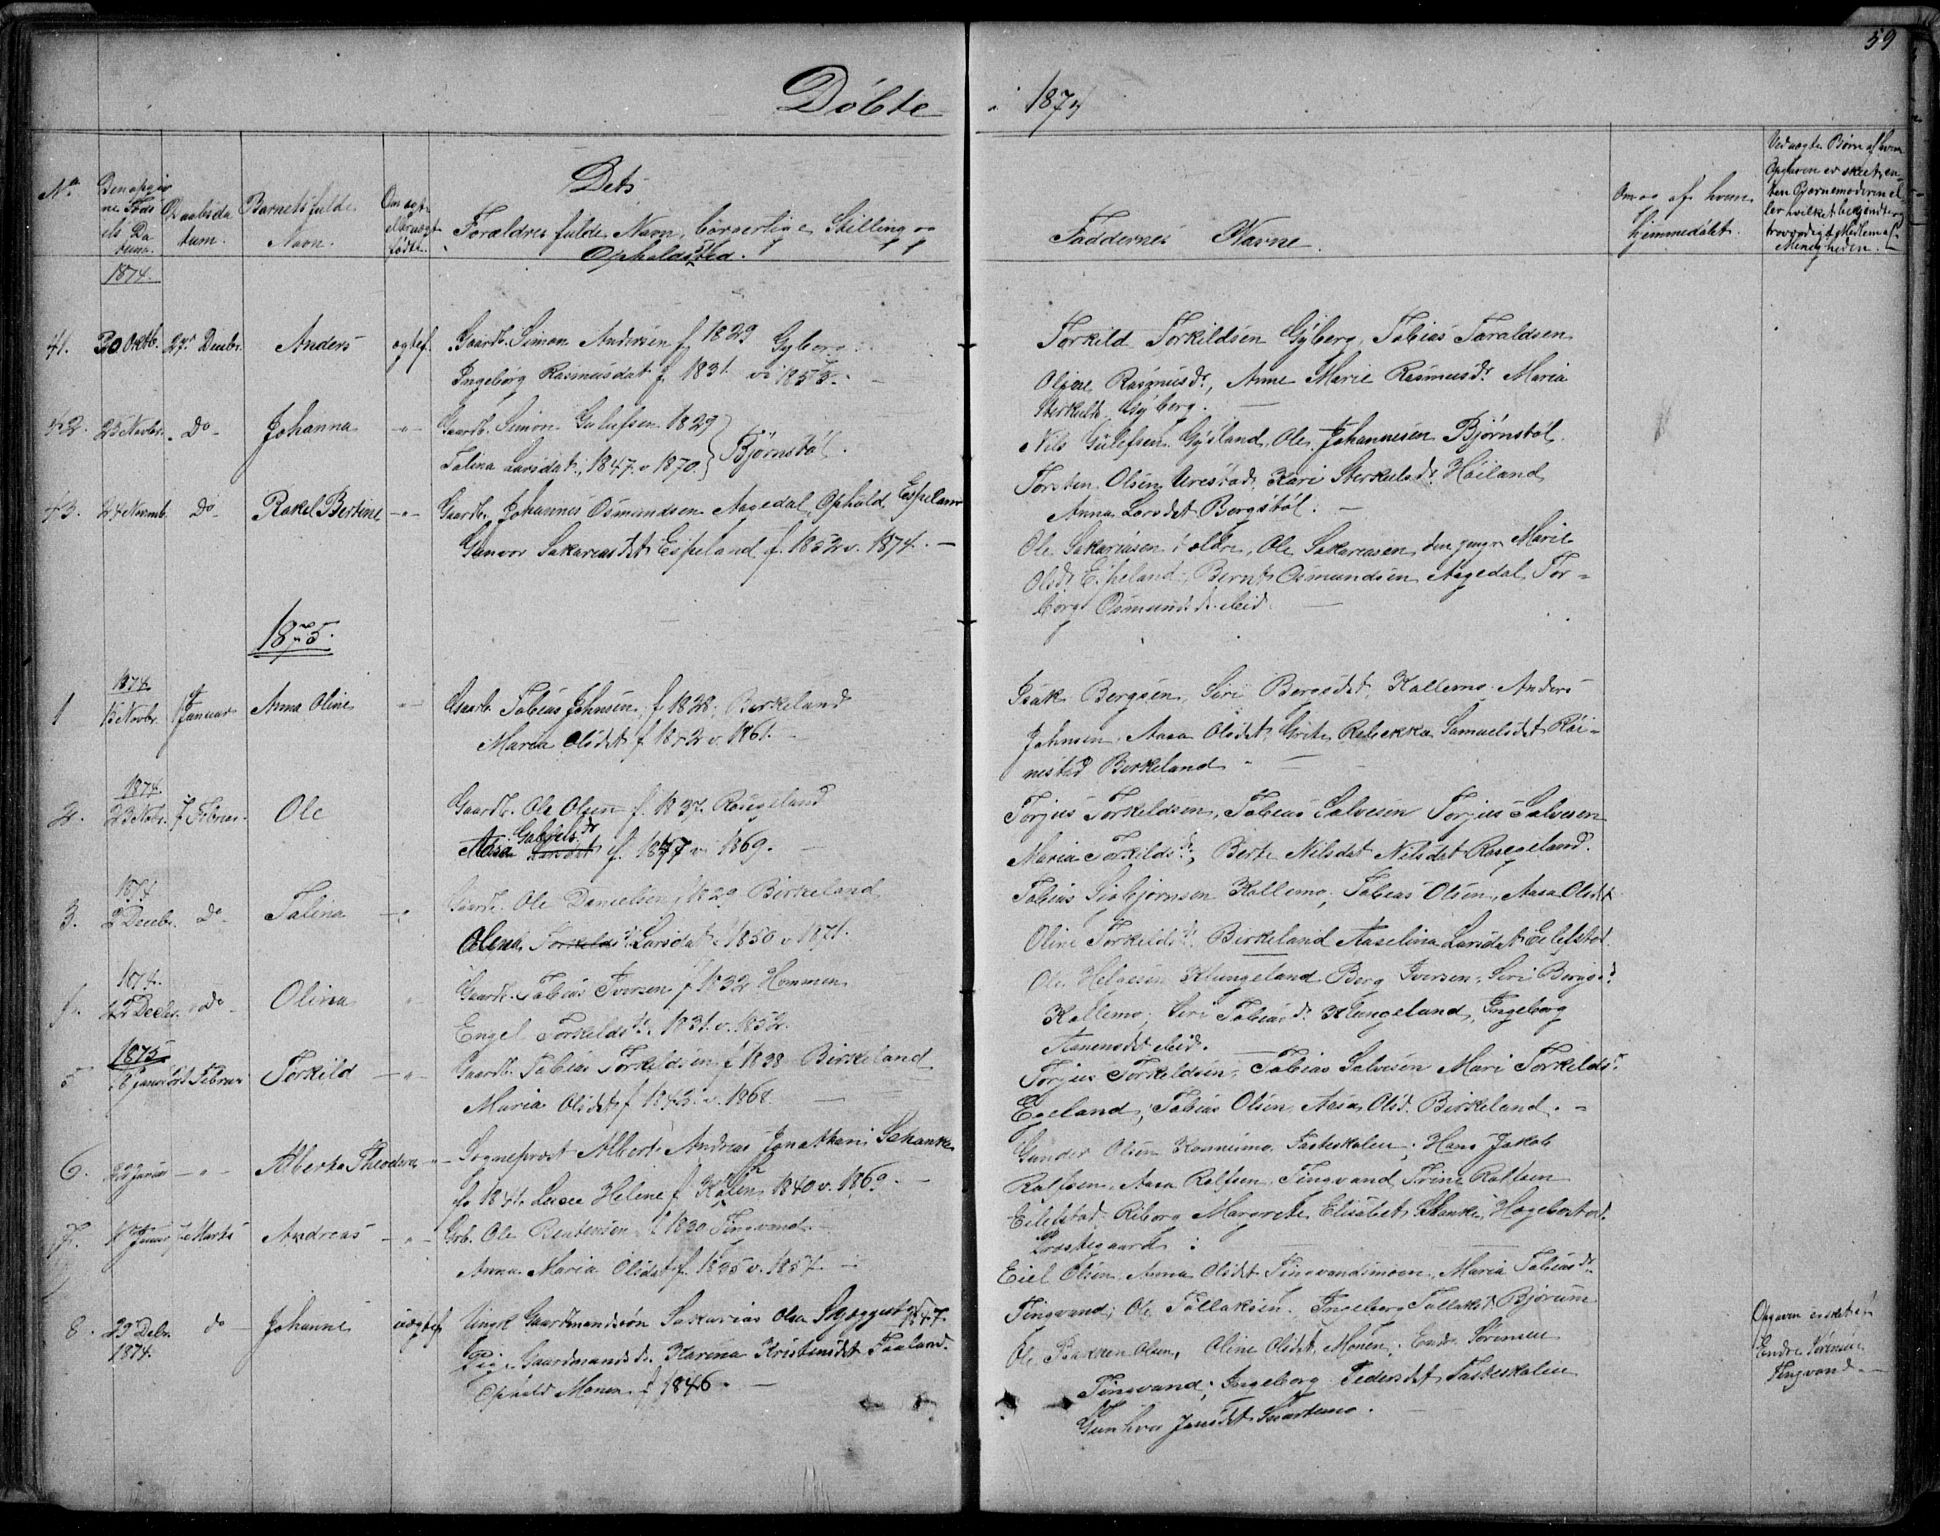 59
Döbte i 1874
No
Den opgiv
ne Föds
els Da
tum.
Daabsda
tum.
Barnets fulde
Navn.
Om ægte
eller uægte
födte.
Dets
Forældres fulde Navn, borgerlige Stilling og
Opholdssted.
Faddernes Navne.
Om og af hvem
hjemmedöbt.
Ved uægte Börn af hvem
Opgaven er skeet, en-
ten Barnemoderen el-
ler hvilket bekjendt og
troværdigt Medlem af
Menigheden.
1874.
41. 30 Oktb. 27 Decbr. Anders ægtef. Gaardb. Simon Andersen f 1829 Gyberg
Ingeborg Rasmusdat f 1831 v. 1853.
Torkild Torkildsen Gyberg, Tobias Taraldsen
Rasmusdr, Anne Marie Rasmusdr Maria
Sterkulds Gyberg.
42. 23 Novbr. Do Johanna -"- Gaardb. Simon Gulufsen 1829
Talina Larsdat, 1847 v 1870. Björnstöl.
Nils Gulefsen Gysland, Ole Johannesen Björnstöl.
Torsten Olsen Urestad, Kari Sterkulsdr Höiland
Anna Larsdet Bergstöl.
43. 24 Novemb. Do Rakel Bertine -"- Gaardb. Johannes Osmundsen Aagedal, Ophold Espeland
Gunvor Sakariasdet Espeland f. 1852 v. 1874.
Ole Sakariasen d. ældre, Ole Sakariasen, den yngr Marie
Olsdr Espeland, Bernt Osmundsen Aagedal, Tor-
borg Osmundsdr ibid.
1875.
1874.
1 15 Novbr. 1 Januar Anna Oline -"- Gaardb. Tobias Johnsen, f 1828, Birkeland
Maria Olsdet f 1842 v. 1861.
Isak Bergsen, Siri Bergsdet Kallemo Anders
Johnsen, Aasa Olsdet, Rebekka Samuelsdet Röi-
nestad Birkeland
1874.
2. 23 Novbr. 7 Februar. Ole Gaardb. Ole Olsen f. 1837. Rougeland
Aasa Gabrielsdr f. 1847 v. 1869.
Torjus Torkeldsen, Tobias Salvesen Torjus Salvesen
Maria Torkildsdr, Berte Nilsdat Nilsdat Rougeland.
1874
3. 2 Decbr. Do Talina -"- Gaardb. Ole Danielsen, 1829 Birkeland
Olena Torkildsdr Larsdat 1850 v 1871.
Tobias Sisbjornsen Kallemo, Tobias Olsen, Aasa Olsdet
Oline Torkildsdr Birkeland Aaselina Larsdat Eilefstad
1874.
4. 22 Decbr. do Olina " Gaardb. Tobias Iversen f 1832 Hommen
Engel Torkildsdr, 1831 v. 1852.
Ole Helgesen Klungeland Berg Iversen, Siri Bergsd.
Kallemo, Siri Tobiasdr Klungeland, Ingeborg
Aanensdet ibid.
1875
5 Januar Februar Torkild -"- Gaardb. Tobias Torkildsen f 1838 Birkeland
Maria Olsdet f 1843 v. 1868.
Torjus Torkeldsen, Tobias Salvesen Mari Torkeldsdr
Egeland, Tobias Olsen, Aasa Olsd. Birkeland.
6. 22 Januar -"- Alberta Theodora -"- Sogneprest Albert Andreas Jonathan Schanke
f. 1841. Lucie Helene f. 1840 v. 1869.
Gunder Olsen Konneimo. Fasteskolen, Hans Jakob
Rolfsen, Aasa Rolfsen, Tingvand Trine Rolfsen
Eilefstad, Riborg Margrete Elisabet Schanke, Hægebostad
Prestegaard.
7. Januar Marts Andreas -"- Grb. Ole Bentensen f 1830 Tingvand
Anna Maria Olsdat f. 1835 v. 1857.
Eiel Olsen, Anna Olsdet Tingvandsmoen, Maria Tobiasdr
Tingvand, Ole Tollaksen, Ingeborg Tollaksdr Bjorum
8. 29 Debr. 1874. do Johanne uægtef. Ungk. Gaardmandssön Sakarias Olsen Skeggestad 1847.
Pige, Gaardmandsdr. Karina Kristensdet Faaland.
Ophold Monen f 1846.
Ole Bakken Olsen, Oline Olsdet Monen, Endr Sörensen
Tingvand, Ingeborg Pedersdet Fasteskolen
Gunhvor Jensdet Snartemo.
Opgaven er sket af
Endre Sörensen
Tingvand.